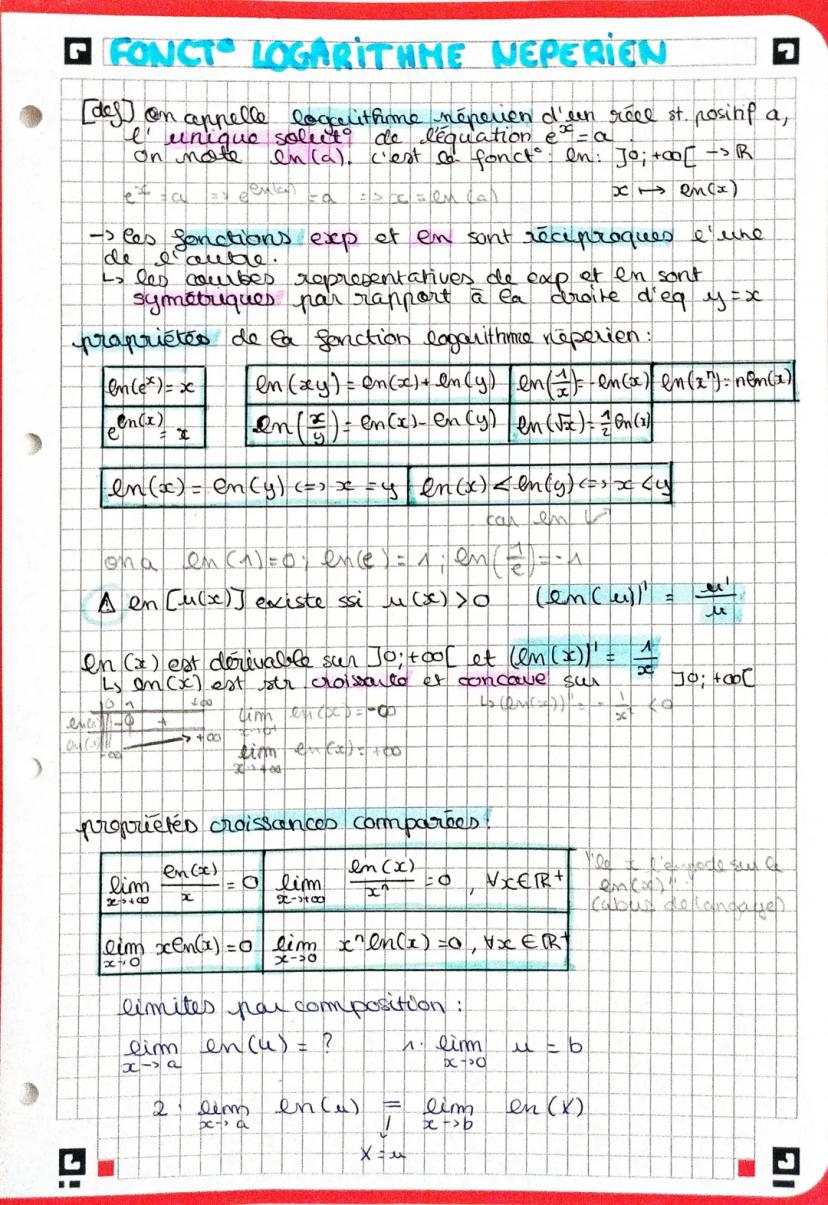 FONCT° LOGARITHME NEPERIEN
[def] On appelle logarithme néperien d'un réel st. positif a,
l'unique solut° de l'équation eˣ = a.
On note ln(a). c'est la fonct°: ln: ]0;+∞[ → ℝ
x ↦ ln(x)
eˣ = a => e^ln(a) = a => x = ln(a)
→ les fonctions exp et ln sont réciproques l'une
de l'autre.
↳ les courbes representatives de exp et ln sont
symétriques par rapport à la droite d'eq y = x
propriétés de la fonction logarithme néperien:
ln(eˣ) = x
e^ln(x) = x
ln(xy) = ln(x) + ln(y) ln(1/x) = -ln(x) ln(xⁿ) = nln(x)
ln(x/y) = ln(x) - ln(y) ln(√x) = 1/2 ln(x)
ln(x) = ln(y) <=> x = y ln(x) < ln(y) <=> x < y
car ln ↗
on a ln(1) = 0 ; ln(e) = 1 ; ln(1/e) = -1
⚠ ln[u(x)] existe ssi u(x) > 0 (ln(u))' = u'/u
ln(x) est dérivable sur ]0;+∞[ et (ln(x))' = 1/x
↳ ln(x) est str croissante et concave sur ]0;+∞[
0 1 +∞
ln(x) - 0 +
ln(x) -∞ → +∞
lim x→0⁺ ln(x) = -∞
lim x→+∞ ln(x) = +∞
↳ (ln(x))'' = -1/x² < 0
propriétés croissances comparées:
lim x→+∞ ln(x)/x = 0 lim x→+∞ ln(x)/xⁿ = 0 , ∀x∈ℝ⁺
lim x→0 xln(x) = 0 lim x→0 xⁿln(x) = 0 , ∀x∈ℝ⁺
"le x l'emporte sur le
ln(x)"
(abus de langage)
limites par composition :
lim x→a ln(u) = ? 1. lim x→0 u = b
2. lim x→a ln(u) = lim x→b ln(X)
X = u